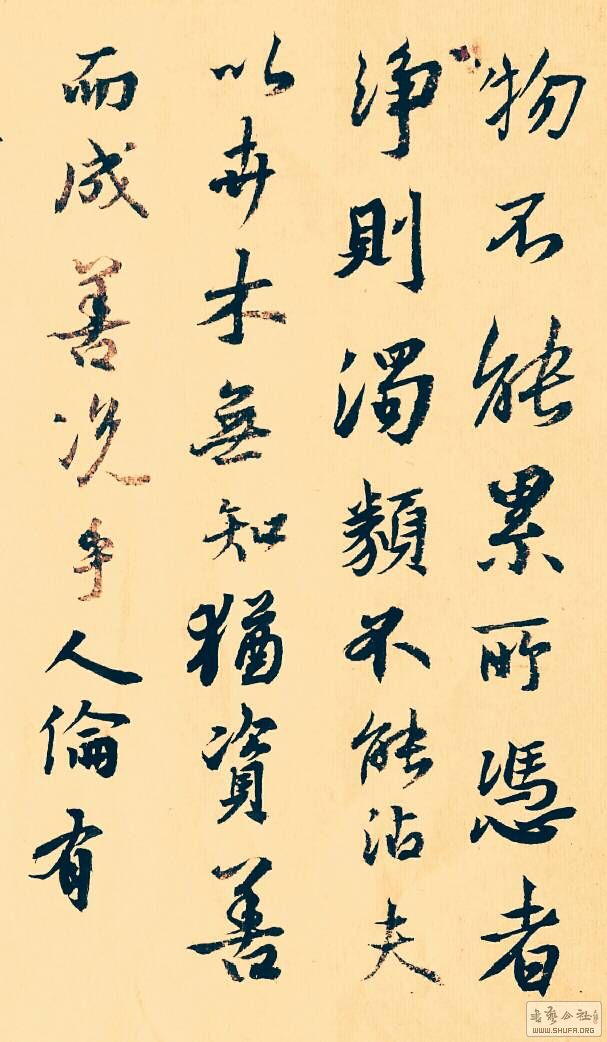 物不能累所憑者
淨則濁類不能沾夫
以卉木無知猶資善
而成善况乎人倫有
書藝公社
WWW.SHUFA.ORG